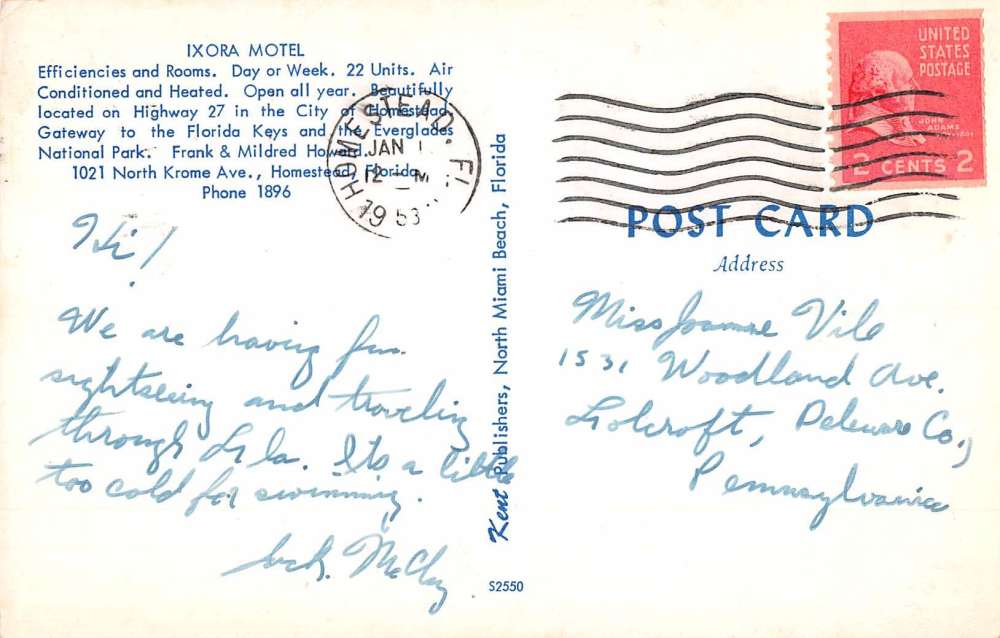 IXORA MOTEL
Efficiencies and Rooms. Day or Week. 22 Units. Air
Conditioned and Heated. Open all year. Beautifully
located on Highway 27 in the City of Homestead,
Gateway to the Florida Keys and the Everglades
National Park. Frank & Mildred Howard.
1021 North Krome Ave., Homestead, Florida
Phone 1896
HOMESTEAD. FL
JAN 1
12 M
1953
UNITED
STATES
POSTAGE
JOHN
ADAMS
2 CENTS 2
Hi!
We are having fun
sightseeing and traveling
through Fla. Its a little
too cold for swimming.
McCloy
Kent Publishers, North Miami Beach, Florida
S2550
POST CARD
Address
Miss Joanne Vile
1531 Woodland Ave.
Folcroft, Deleware Co.,
Pennsylvania